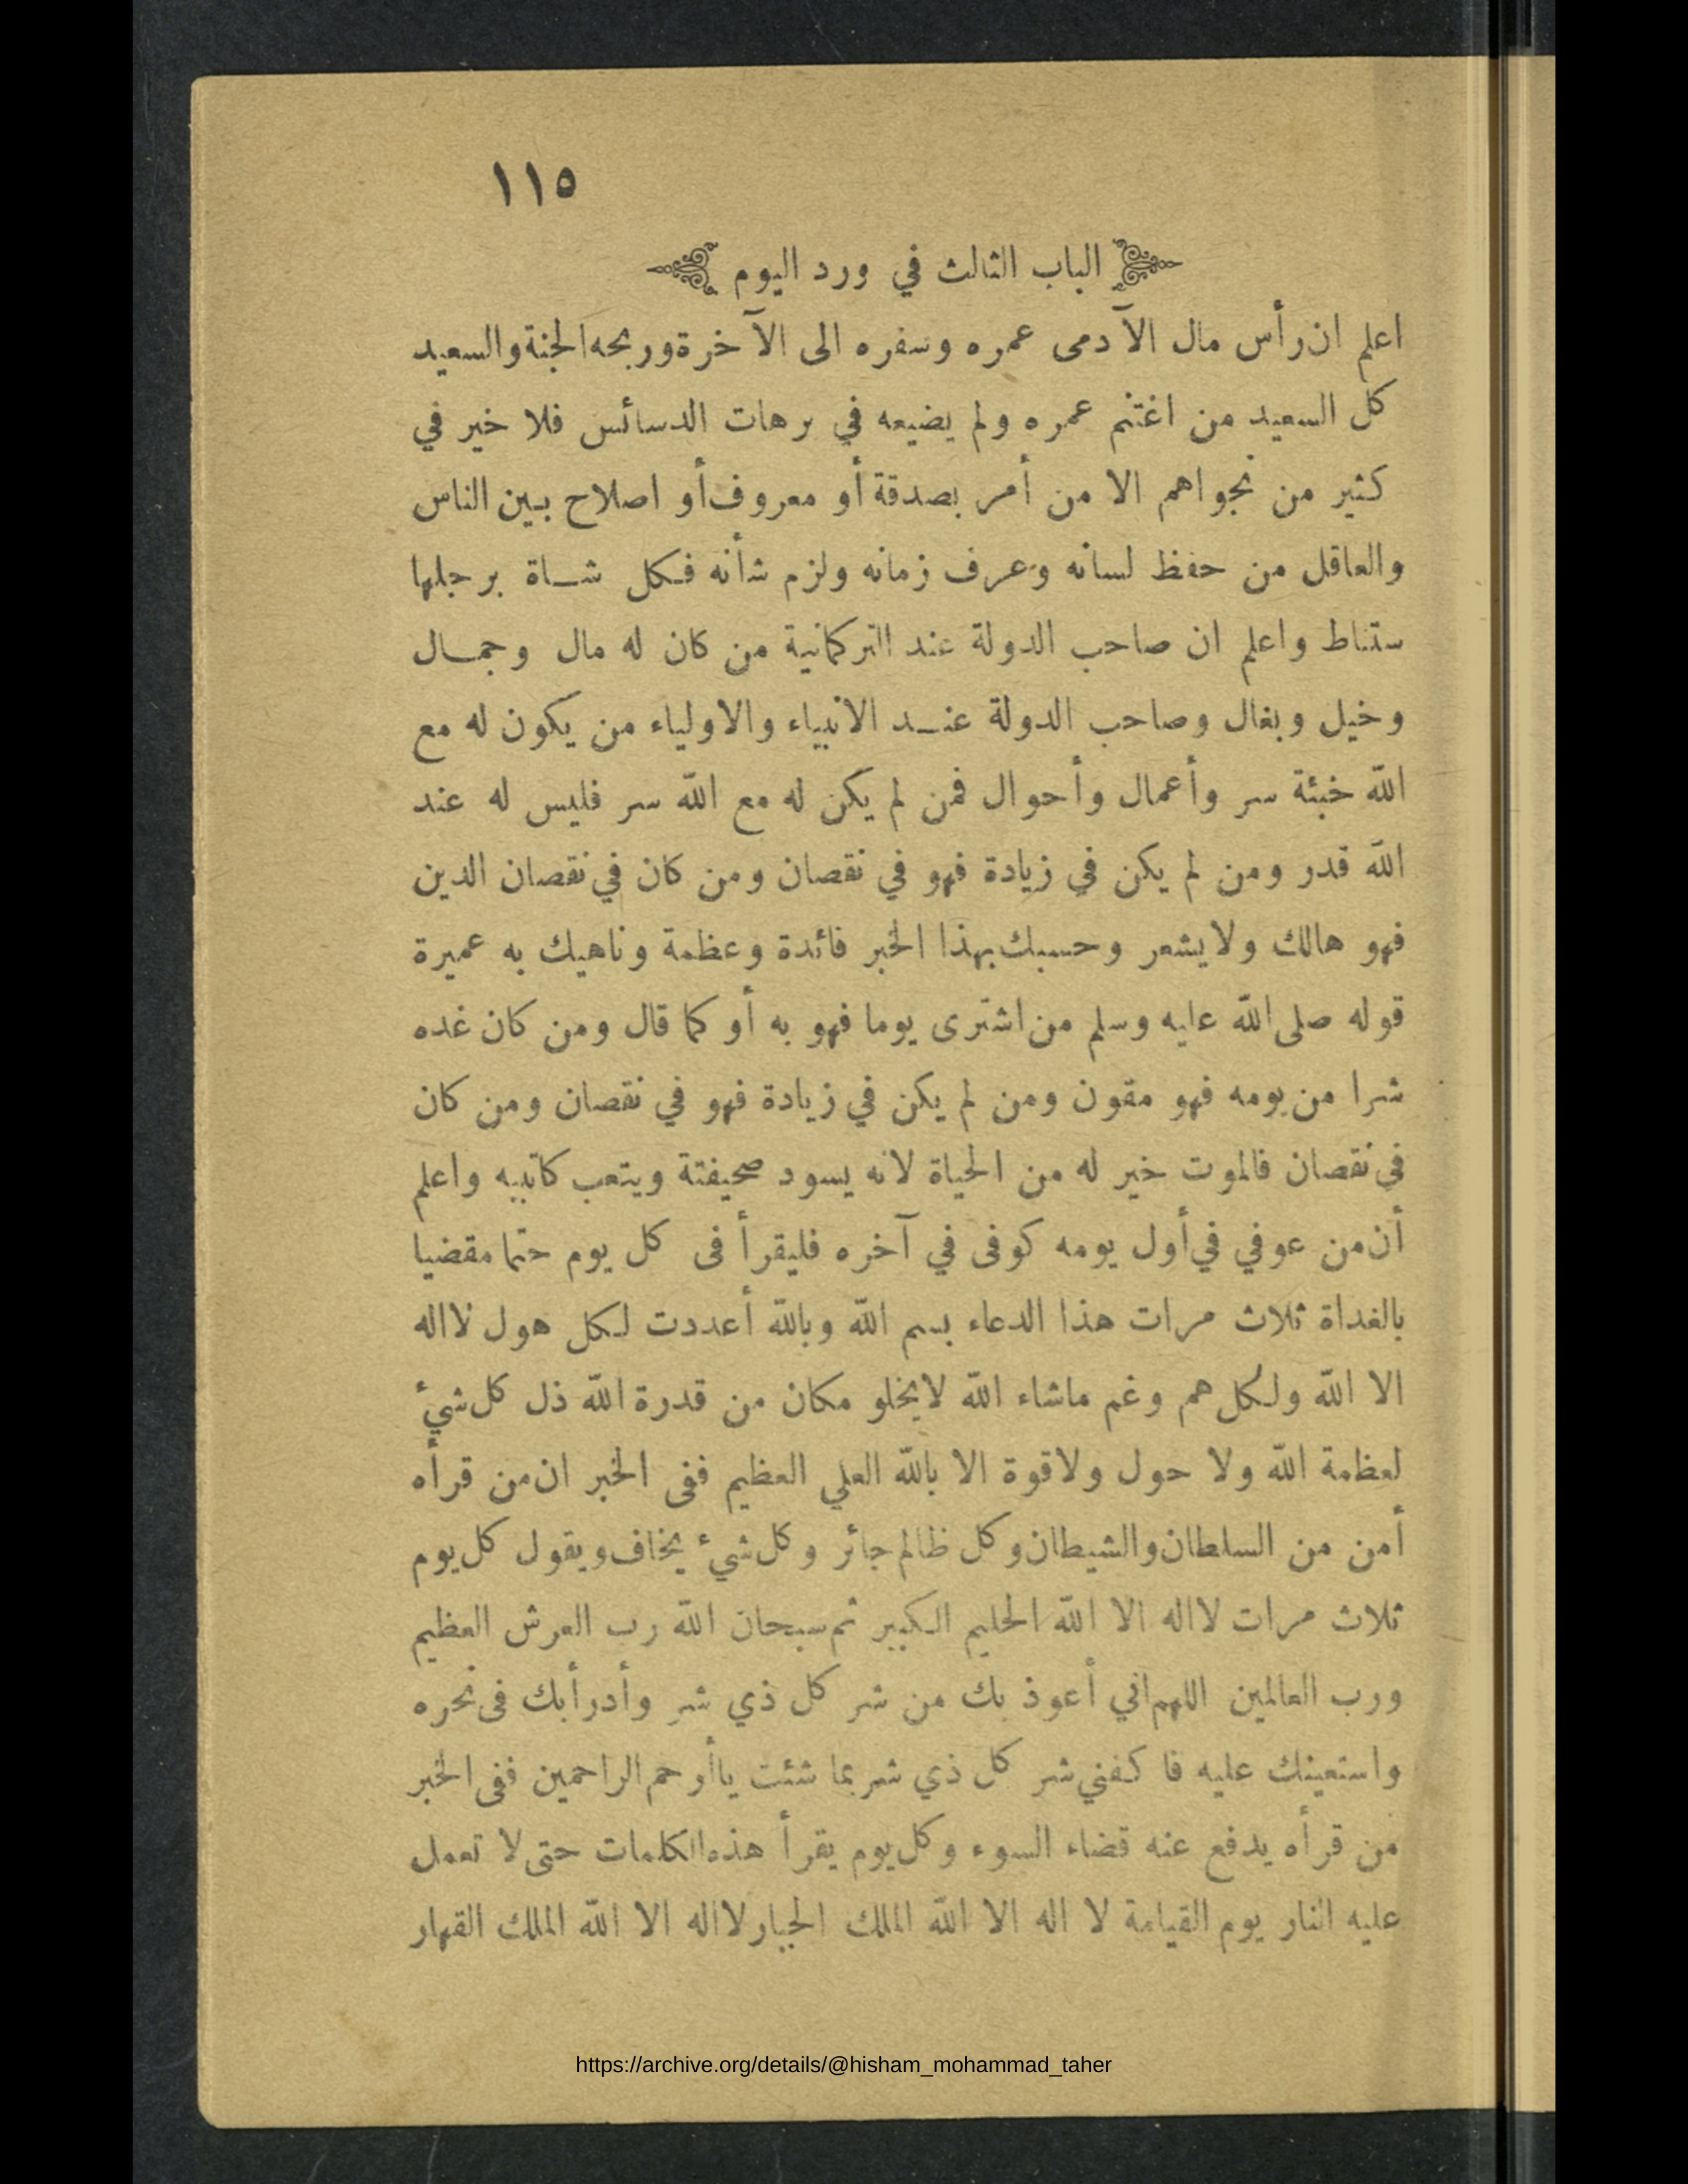 ١١٥
الباب الثالث في ورد اليوم
اعلم ان رأس مال الآدمى عمره وسفره الى الآخرة وربحه الجنة والسعيد
كل السعيد من اغتنم عمره ولم يضيعه في برهات الدسائس فلا خير في
كثير من نجواهم الا من أمر بصدقة أو معروف أو اصلاح بين الناس
والعاقل من حفظ لسانه وعرف زمانه ولزم شأنه فكل شاة برجلها
ستناط واعلم ان صاحب الدولة عند التركمانية من كان له مال وجمال
وخيل وبغال وصاحب الدولة عند الانبياء والاولياء من يكون له مع
الله خبئة سر وأعمال وأحوال فمن لم يكن له مع الله سر فليس له عند
الله قدر ومن لم يكن في زيادة فهو في نقصان ومن كان في نقصان الدين
فهو هالك ولا يشعر وحسبك بهذا الخبر فائدة وعظمة وناهيك به عميرة
قوله صلى الله عليه وسلم من اشترى يوما فهو به أو كما قال ومن كان غده
شرا من يومه فهو مقون ومن لم يكن في زيادة فهو في نقصان ومن كان
في نقصان فالموت خير له من الحياة لانه يسود صحيفتة ويتعب كاتبيه واعلم
أن من عوفي في أول يومه كوفى في آخره فليقرأ فى كل يوم حتما مقضيا
بالغداة ثلاث مرات هذا الدعاء بسم الله وبالله أعددت لكل هول لااله
الا الله ولكل هم وغم ماشاء الله لايخلو مكان من قدرة الله ذل كل شيء
لعظمة الله ولا حول ولاقوة الا بالله العلي العظيم ففى الخبر ان من قرأه
أمن من السلطان والشيطان وكل ظالم جائر وكل شيء يخاف ويقول كل يوم
ثلاث مرات لااله الا الله الحليم الكبير ثم سبحان الله رب العرش العظيم
ورب العالمين اللهم اني أعوذ بك من شر كل ذي شر وأدرأ بك فى نحره
واستعينك عليه فا كفني شر كل ذي شر بما شئت ياأرحم الراحمين ففى الخبر
من قرأه يدفع عنه قضاء السوء وكل يوم يقرأ هذه الكلمات حتى لا تعمل
عليه النار يوم القيامة لا اله الا الله الملك الجبار لااله الا الله الملك القهار
https://archive.org/details/@hisham_mohammad_taher